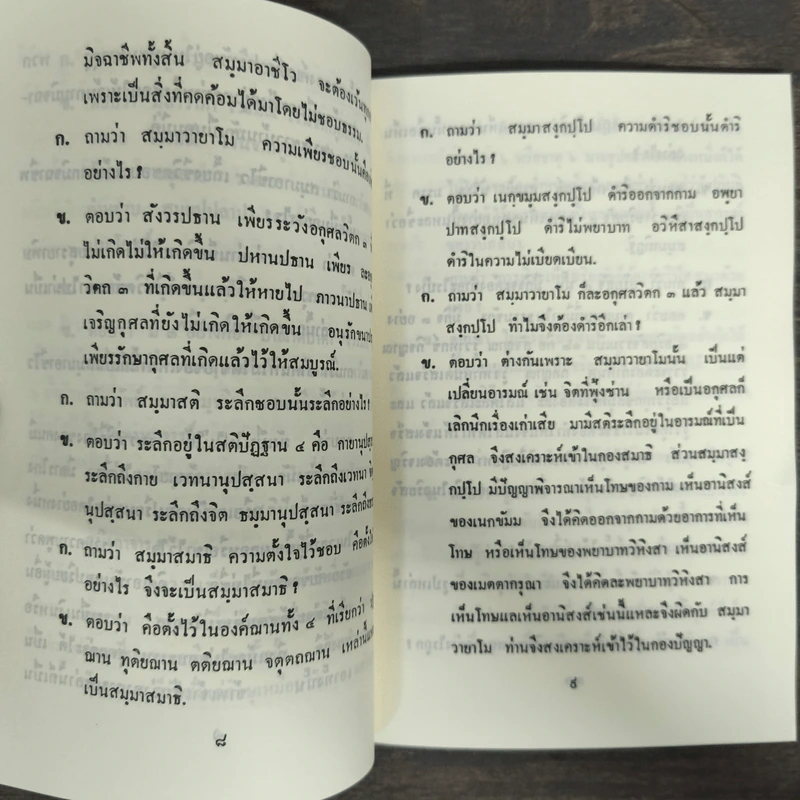 มิจฉาชีพทั้งสิ้น สมฺมาอาชีโว จะต้องเว้น
เพราะเป็นสิ่งที่คดค้อมได้มาโดยไม่ชอบธรรม.
ก. ถามว่า สมฺมาวายาโม ความเพียรชอบนั้น
อย่างไร ?
ข. ตอบว่า สังวรปธาน เพียรระวังอกุศลวิตก ๓
ไม่เกิดไม่ให้เกิดขึ้น ปหานปธาน เพียร
วิตก ๓ ที่เกิดขึ้นแล้วให้หายไป ภาวนาปธาน
เจริญกุศลที่ยังไม่เกิดให้เกิดขึ้น
เพียรรักษากุศลที่เกิดแล้วไว้ให้สมบูรณ์.
ก. ถามว่า สมฺมาสติ ระลึกชอบนั้นระลึกอย่างไร ?
ข. ตอบว่า ระลึกอยู่ในสติปัฏฐาน ๔ คือ
ระลึกถึงกาย เวทนานุปสฺสนา ระลึกถึงเวทนา
นุปสฺสนา ระลึกถึงจิต ธมฺมานุปสฺสนา
ก. ถามว่า สมฺมาสมาธิ ความตั้งใจไว้ชอบ
อย่างไร จึงจะเป็นสมฺมาสมาธิ ?
ข. ตอบว่า คือตั้งไว้ในองค์ฌานทั้ง ๔ ที่เรียกว่า
ฌาน ทุติยฌาน ตติยฌาน จตุตถฌาน
เป็นสมฺมาสมาธิ.
๘
ก. ถามว่า สมฺมาสงฺกปฺโป ความดำริชอบนั้นดำริ
อย่างไร ?
ข. ตอบว่า เนกฺขมฺมสงฺกปฺโป ดำริออกจากกาม อพฺยา
ปาทสงฺกปฺโป ดำริไม่พยาบาท อวิหึสาสงฺกปฺโป
ดำริในความไม่เบียดเบียน.
ก. ถามว่า สมฺมาวายาโม ก็ละอกุศลวิตก ๓ แล้ว สมฺมา
สงฺกปฺโป ทำไมจึงต้องดำริอีกเล่า ?
ข. ตอบว่า ต่างกันเพราะ สมฺมาวายาโมนั้น เป็นแต่
เปลี่ยนอารมณ์ เช่น จิตที่ฟุ้งซ่าน หรือเป็นอกุศลก็
เลิกนึกเรื่องเก่าเสีย มามีสติระลึกอยู่ในอารมณ์ที่เป็น
กุศล จึงสงเคราะห์เข้าในกองสมาธิ ส่วนสมฺมาสงฺ
กปฺโป มีปัญญาพิจารณาเห็นโทษของกาม เห็นอานิสงส์
ของเนกขัมม จึงได้คิดออกจากกามด้วยอาการที่เห็น
โทษ หรือเห็นโทษของพยาบาทวิหิงสา เห็นอานิสงส์
ของเมตตากรุณา จึงได้คิดละพยาบาทวิหิงสา การ
เห็นโทษแลเห็นอานิสงส์เช่นนี้แหละจึงผิดกับ สมฺมา
วายาโม ท่านจึงสงเคราะห์เข้าไว้ในกองปัญญา.
๙